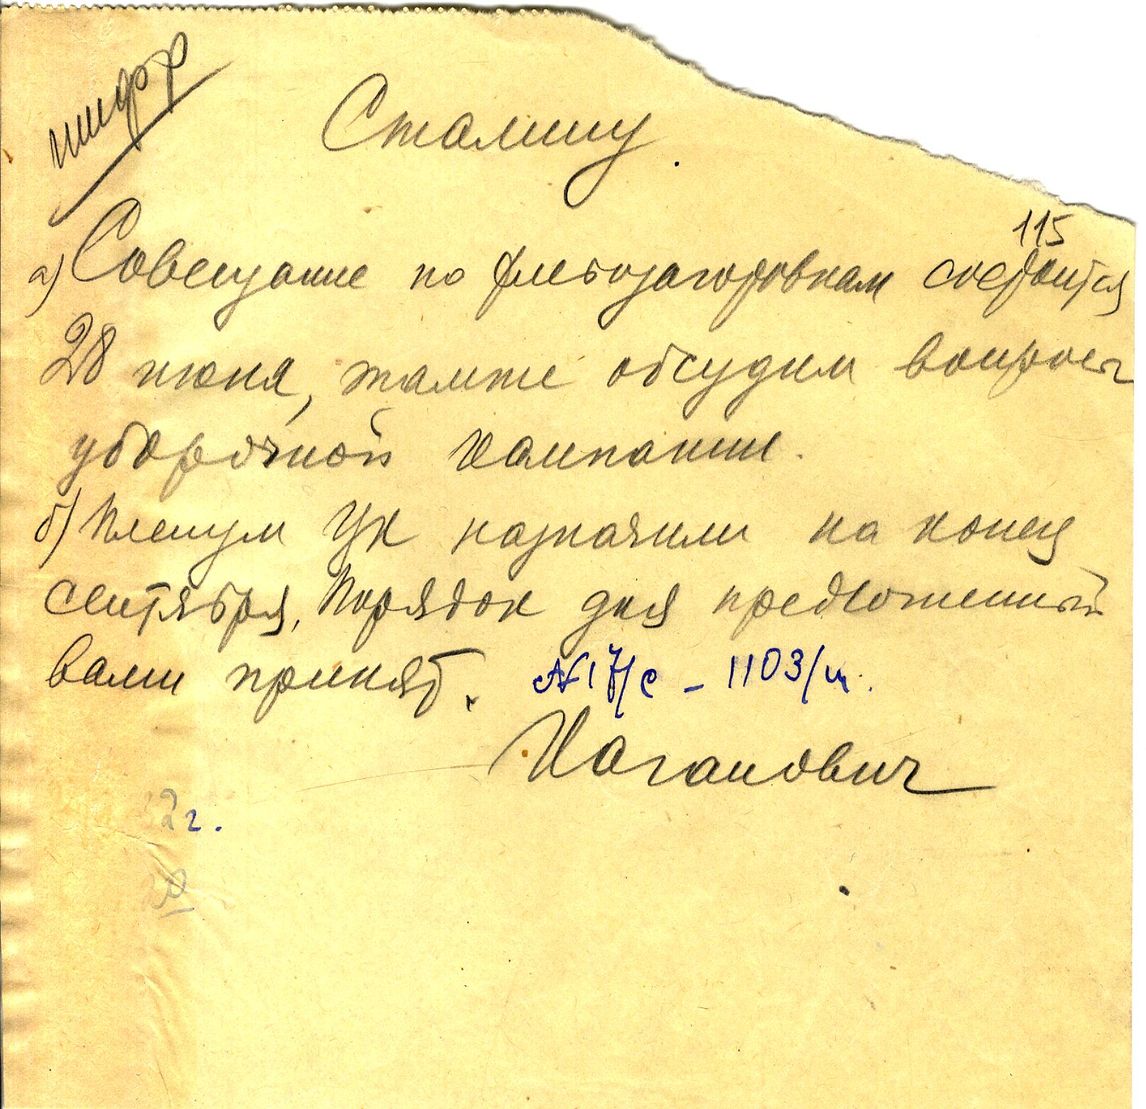 шифр
Сталину.
115
а) Совещание по хлебозаготовкам состоится
28 июня, там же обсудим вопросы
уборочной кампании.
б) Пленум ЦК назначили на конец
сентября, Порядок дня предложенный
вами принят. №17/с – 1103/ш.
Каганович
2 г.